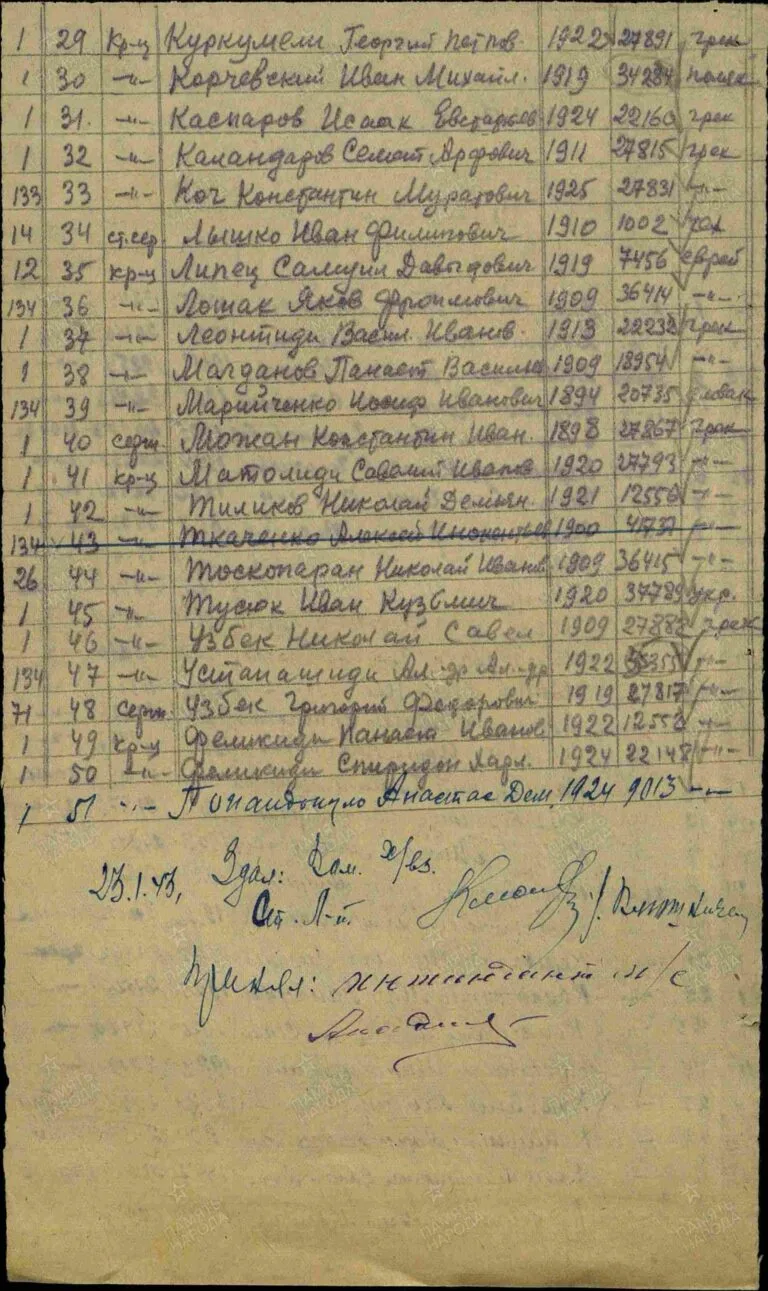 1 29 Кр-ц Куркумели Георгий Петров. 1922 27891 грек
1 30 -"- Корчевский Иван Михайл. 1919 34284 поляк
1 31. -"- Каспаров Исаак Евстафьев 1924 22160 грек
1 32 -"- Каландаров Семат Арфович 1911 27815 грек
133 33 -"- Коч Константин Муратович 1925 27831 -"-
14 34 ст.сер Лышко Иван Филипович 1910 1002
12 35 кр-ц Липец Самуил Давыдович 1919 7456 еврей
134 36 -"- Лошак Яков Фроимович 1909 36414 -"-
1 37 -"- Леонтиди Васил. Иванов. 1913 22232 грек
1 38 -"- Магданов Панает Василь 1909 18954 -"-
134 39 -"- Марийченко Иосиф Иванович 1894 20735 словак
1 40 серж Можан Константин Иван. 1898 27867 грек
1 41 кр-ц Матолиди Савелий Иванов 1920 27793 -"-
1 42 -"- Тиликов Николай Демьян. 1921 12556 -"-
134 43 -"- Ткаченко Алексей Инокентьев 1900 41737 -"-
26 44 -"- Тоскопаран Николай Иванов 1909 36415 -"-
1 45 -"- Тусюк Иван Кузьмич 1920 37789 укр.
1 46 -"- Узбек Николай Савел 1909 27882 грек
134 47 -"- Устапашиди Ал-др Ал-др 1922 -"-
71 48 серж Узбек Григорий Федорович 1919 27817 -"-
1 49 кр-ц Феликиди Панает Иванов 1922 12552 -"-
1 50 -"- Феликиди Спиридон Харл. 1924 22148 -"-
1 51 -"- Попандопуло Анастас Дем. 1924 9013 -"-
23.1.43, Здал: Ком. х/вз.
Ст. Л-т.
Принял: интендант
ПАМЯТЬ НАРОДА